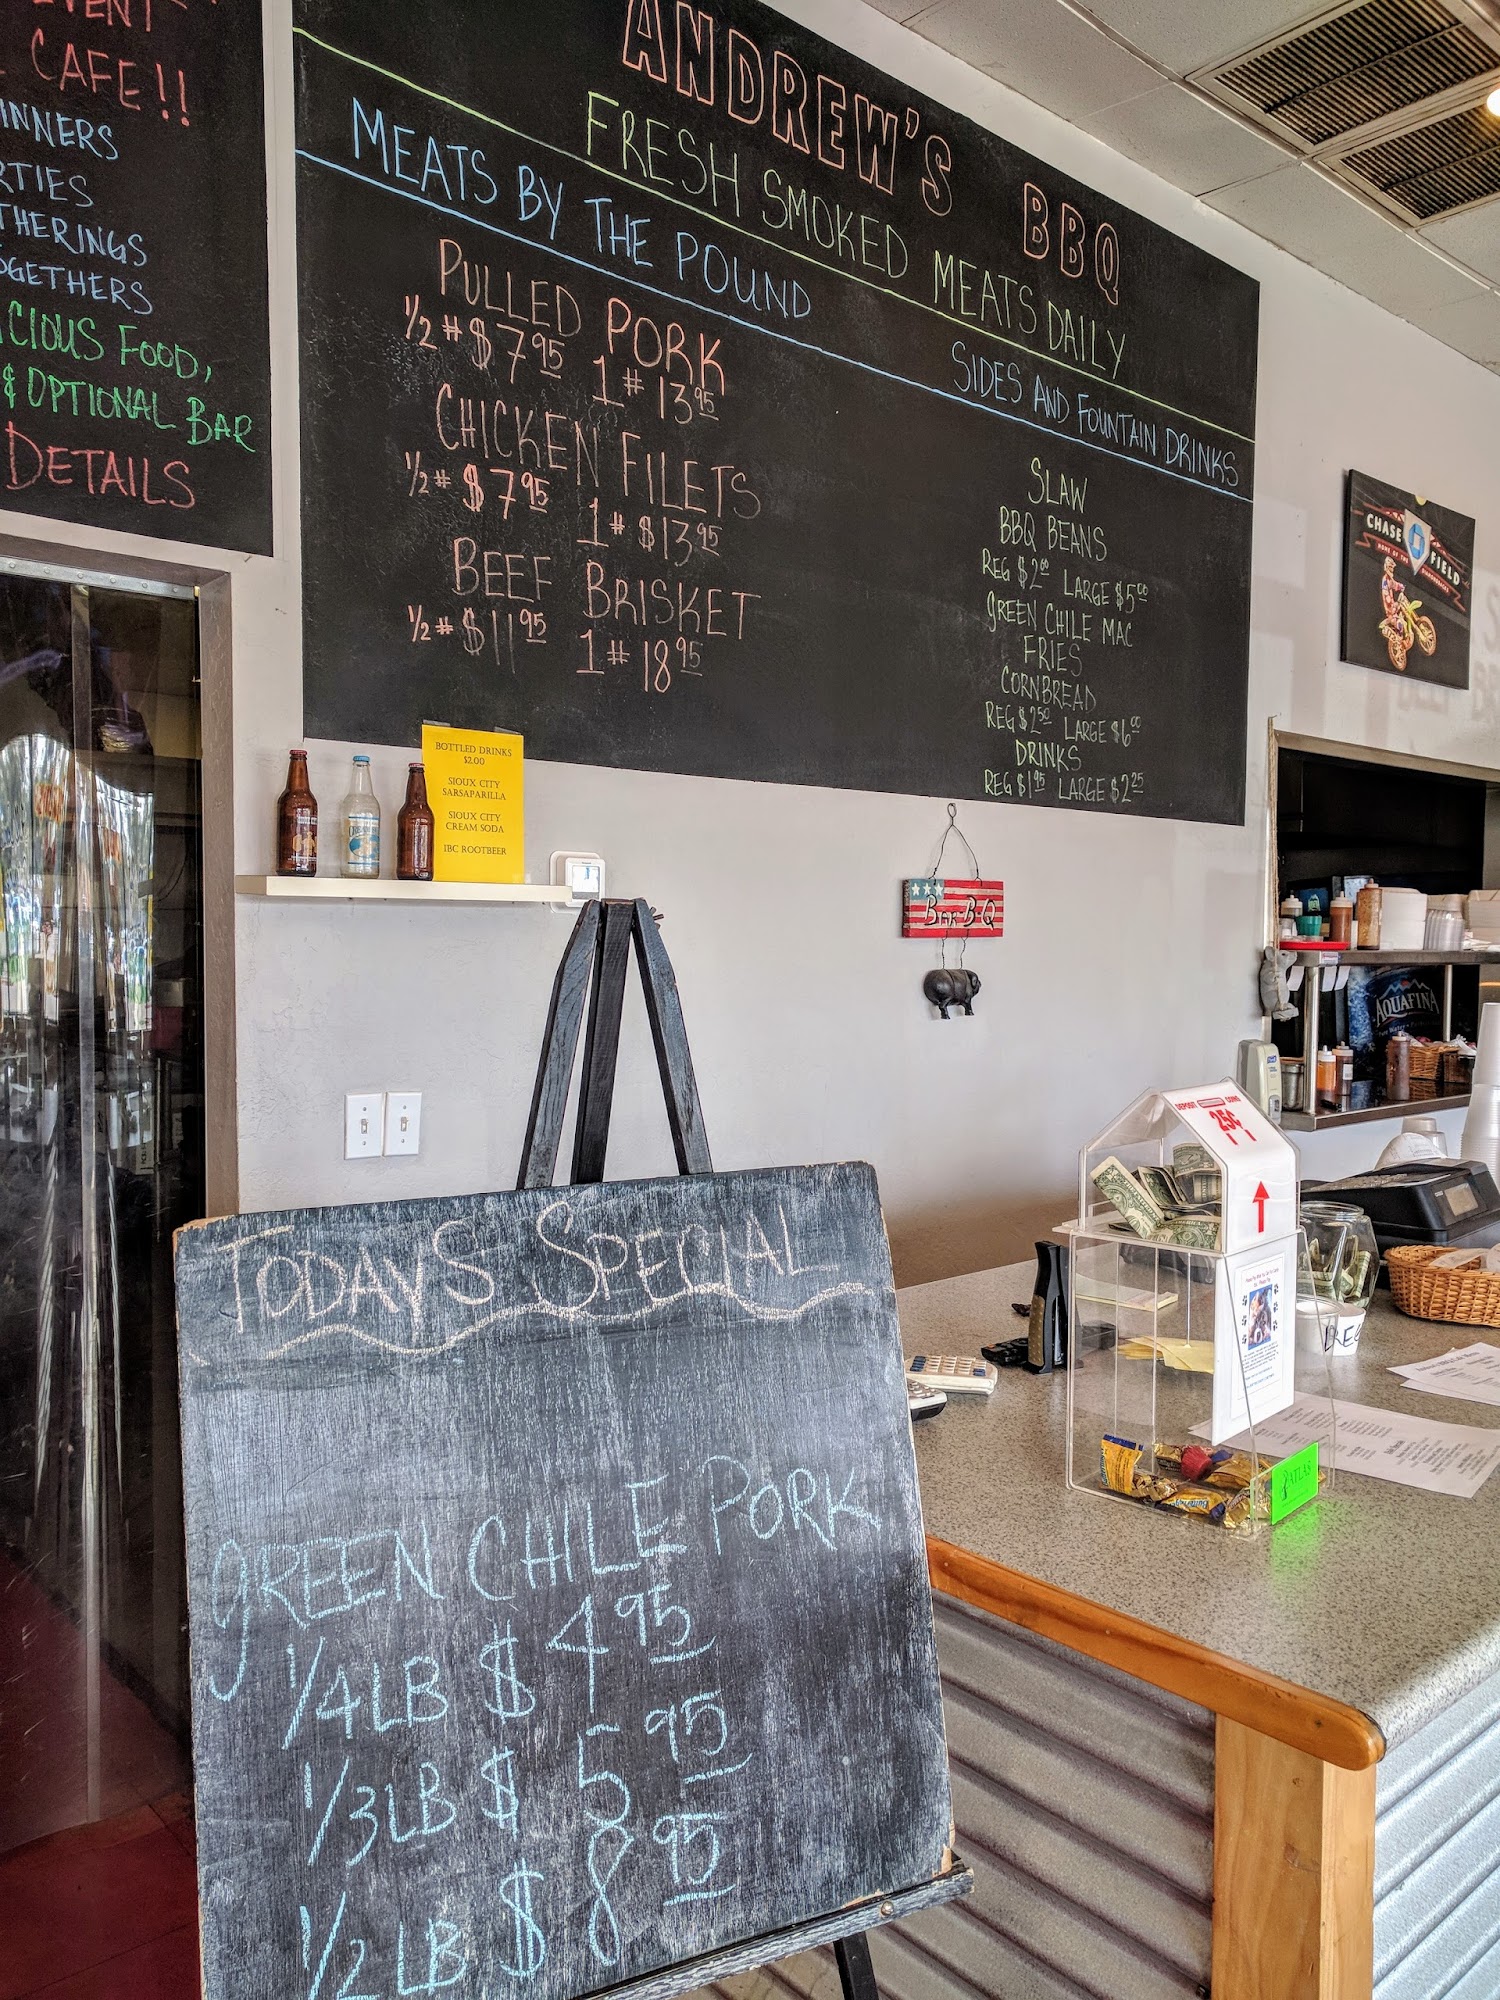 EVENT
CAFE!!
INNERS
RTIES
THERINGS
OGETHERS
CIOUS FOOD,
& OPTIONAL BAR
DETAILS
ANDREW'S BBQ
FRESH SMOKED MEATS DAILY
MEATS BY THE POUND
PULLED PORK
1/2 # $7.95 1 # 13.95
CHICKEN FILETS
1/2 # $7.95 1 # $13.95
BEEF BRISKET
1/2 # $11.95 1 # 18.95
SIDES AND FOUNTAIN DRINKS
SLAW
BBQ BEANS
REG $2.00 LARGE $5.00
GREEN CHILE MAC
FRIES
CORNBREAD
REG $2.50 LARGE $6.00
DRINKS
REG $1.95 LARGE $2.25
CHASE FIELD
BOTTLED DRINKS
$2.00
SIOUX CITY
SARSAPARILLA
SIOUX CITY
CREAM SODA
IBC ROOTBEER
BAR-B-Q
AQUAFINA
DEPOSIT COINS
25¢
ATLAS
TODAYS SPECIAL
GREEN CHILE PORK
1/4 LB $4.95
1/3 LB $5.95
1/2 LB $8.95